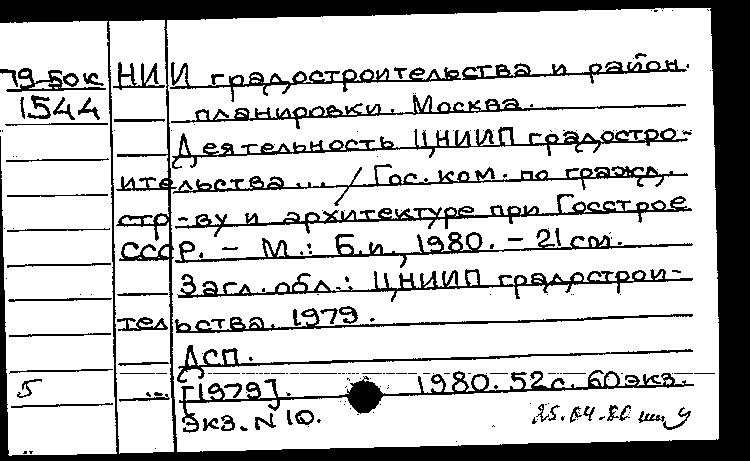 79-5ок НИИ градостроительства и район.
1544 планировки. Москва.
Деятельность ЦНИИП градостро-
ительства... / Гос. ком. по гражд.
стр-ву и архитектуре при Госстрое
СССР. - М.: Б.и., 1980. - 21 см.
Загл. обл.: ЦНИИП градострои-
тельства. 1979.
Дсп.
5 ... [1979]. 1980. 52 с. 60 экз.
Экз. N 10. 25.04.80